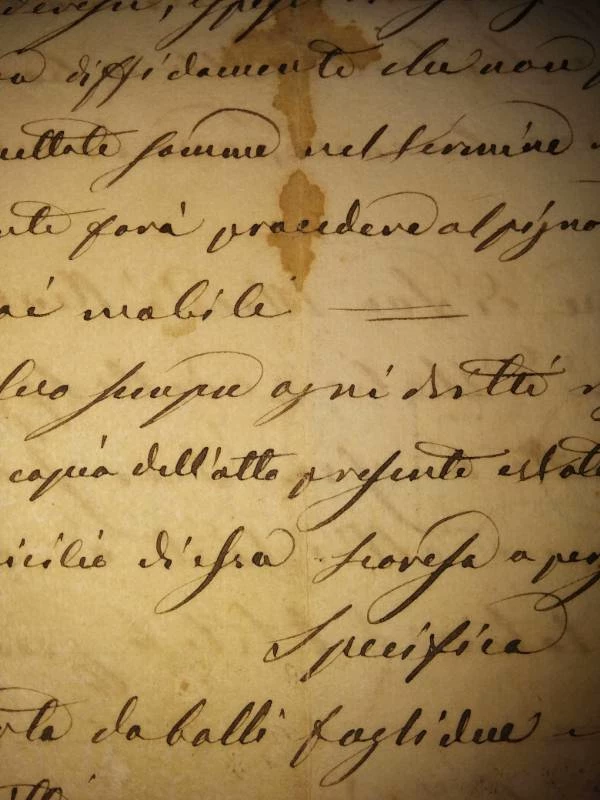 diffidamente che non
somme nel termine
farà procedere al pigno
mobili
sempre ogni dritti
copia dell'atto presente è stata
icilio di essa Scoresa a per
Specifica
rta da bolli fogli due